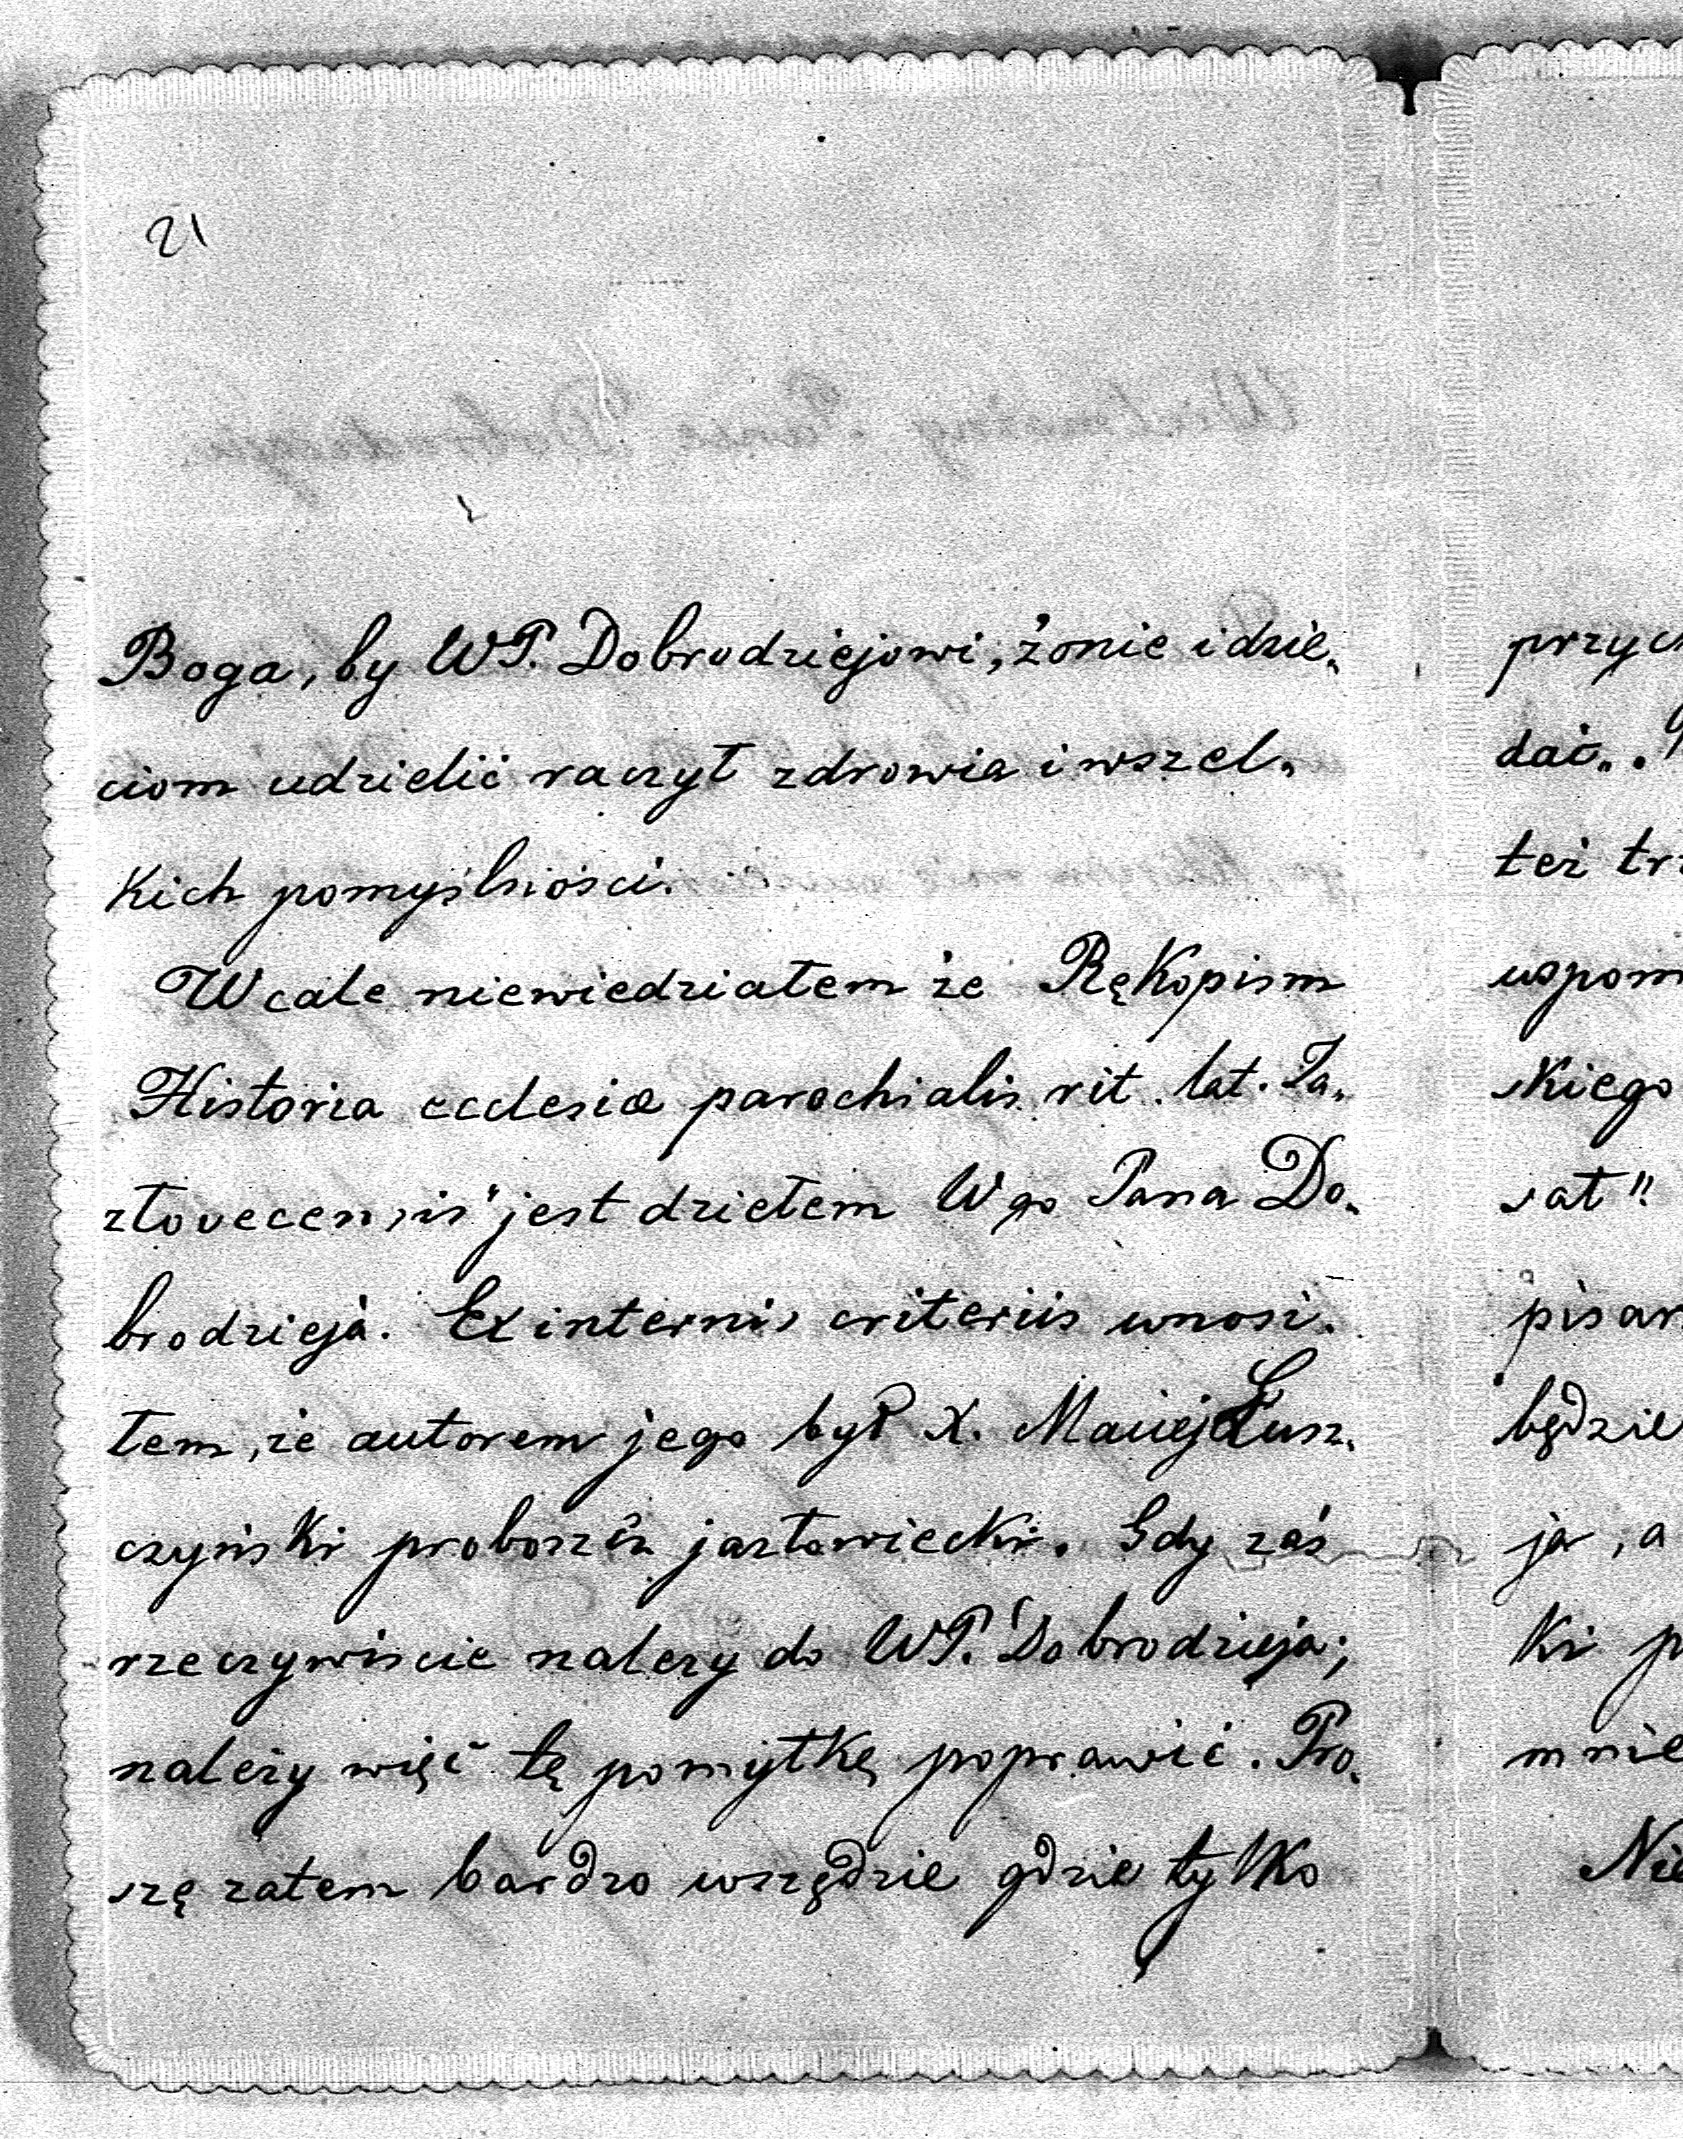 21
Boga, by WP. Dobrodziejowi, żonie i dzie„
ciom udzielić raczył zdrowia i wszel„
kich pomyślności.
Wcale niewiedziałem że Rękopism
Historia ecclesiæ parochialis rit. lat. Ja„
złovecensis" jest dziełem Wgo Pana Do„
brodzieja. Ex internis criteriis wnosi„
łem, że autorem jego był X. Maciej Łusz„
czyński proboszcz jazłowiecki. Gdy zaś
rzeczywiście należy do WP. Dobrodzieja;
należy więc tę pomyłkę poprawić. Pro„
szę zatem bardzo wszędzie gdzie tylko
przych
dać„.
też trz
wspom
skiego
sał"
pisar
będzie
ja, a
ki p
mnie
Nie